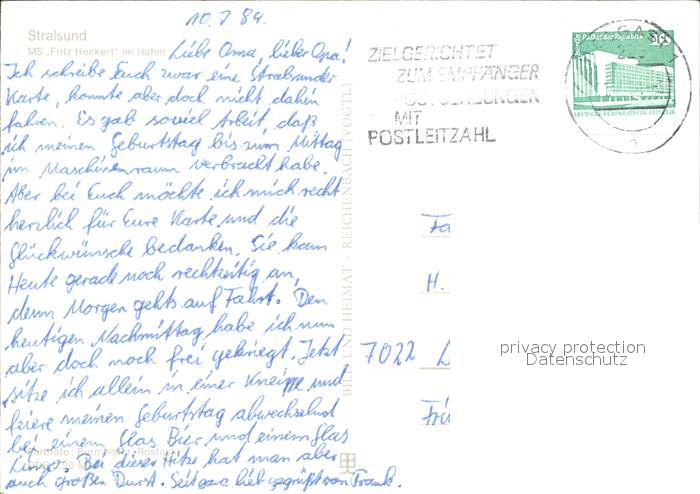 10.7.84.
Stralsund
MS „Fritz Heckert" im Hafen
Liebe Oma, lieber Opa!
Ich schreibe Euch zwar eine Stralsunder
Karte, konnte aber doch nicht dahin
fahren. Es gab soviel Arbeit, daß
ich meinen Geburtstag bis zum Mittag
im Maschinenraum verbracht habe.
Aber bei Euch möchte ich mich recht
herzlich für Eure Karte und die
Glückwünsche bedanken. Sie kam
Heute gerade noch rechtzeitig an,
denn Morgen gehts auf Fahrt. Den
heutigen Nachmittag habe ich nun
aber doch noch frei gekriegt. Jetzt
sitze ich allein in einer Kneippe und
feiere meinen Geburtstag abwechselnd
bei einem Glas Bier und einem Glas
Bei dieser Hitze hat man aber
auch großen Durst. Seit ganz lieb gegrüßt von Frank.
Farbfoto: Burmeister, Rostock
BILD UND HEIMAT · REICHENBACH (VOGTL)
ZIELGERICHTET
ZUM EMPFÄNGER
POSTSENDUNGEN
MIT
POSTLEITZAHL
Berlin, Palast der Republik
10
DEUTSCHE DEMOKRATISCHE REPUBLIK
a
Fa
H.
7022 L
privacy protection
Datenschutz